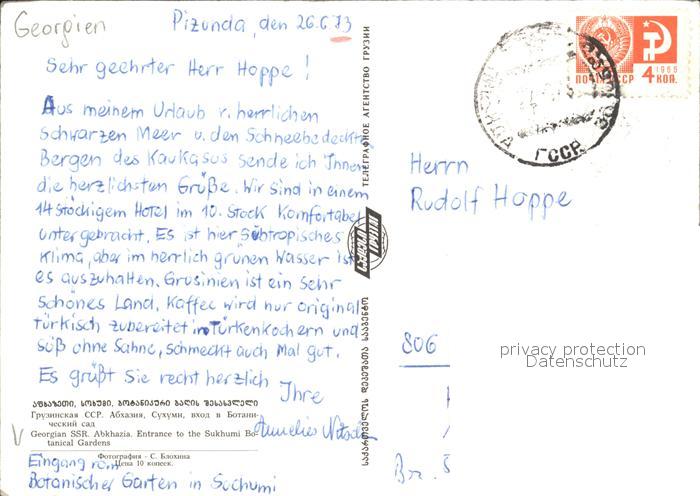 Georgien
Pizunda, den 26.6.73
Sehr geehrter Herr Hoppe!
Aus meinem Urlaub v. herrlichen
Schwarzen Meer u. den Schneebedeckten
Bergen des Kaukasus sende ich Ihnen
die herzlichsten Grüße. Wir sind in einem
14 stöckigem Hotel im 10. Stock komfortabel
untergebracht. Es ist hier Subtropisches
Klima, aber im herrlich grünen Wasser ist
es auszuhalten. Grusinien ist ein sehr
schönes Land. Kaffee wird nur original
türkisch zubereitet in Türkenkochern und
süß ohne Sahne, schmeckt auch Mal gut.
Es grüßt Sie recht herzlich
Ihre
Annelies
აფხაზეთი, სოხუმი, ბოტანიკური ბაღის შესასვლელი
Грузинская ССР. Абхазия. Сухуми, вход в Ботани-
ческий сад
Georgian SSR. Abkhazia. Entrance to the Sukhumi Bo-
tanical Gardens
Фотография - С. Блохина
Цена 10 копеек.
Eingang vom
Botanischer Garten in Sochumi
ТЕЛЕГРАФНОЕ АГЕНТСТВО ГРУЗИИ
საქართველოს დეპეშათა სააგენტო
ПОЧТА СССР
1966
4 КОП.
ГССР
Herrn
Rudolf Hoppe
806
privacy protection
Datenschutz